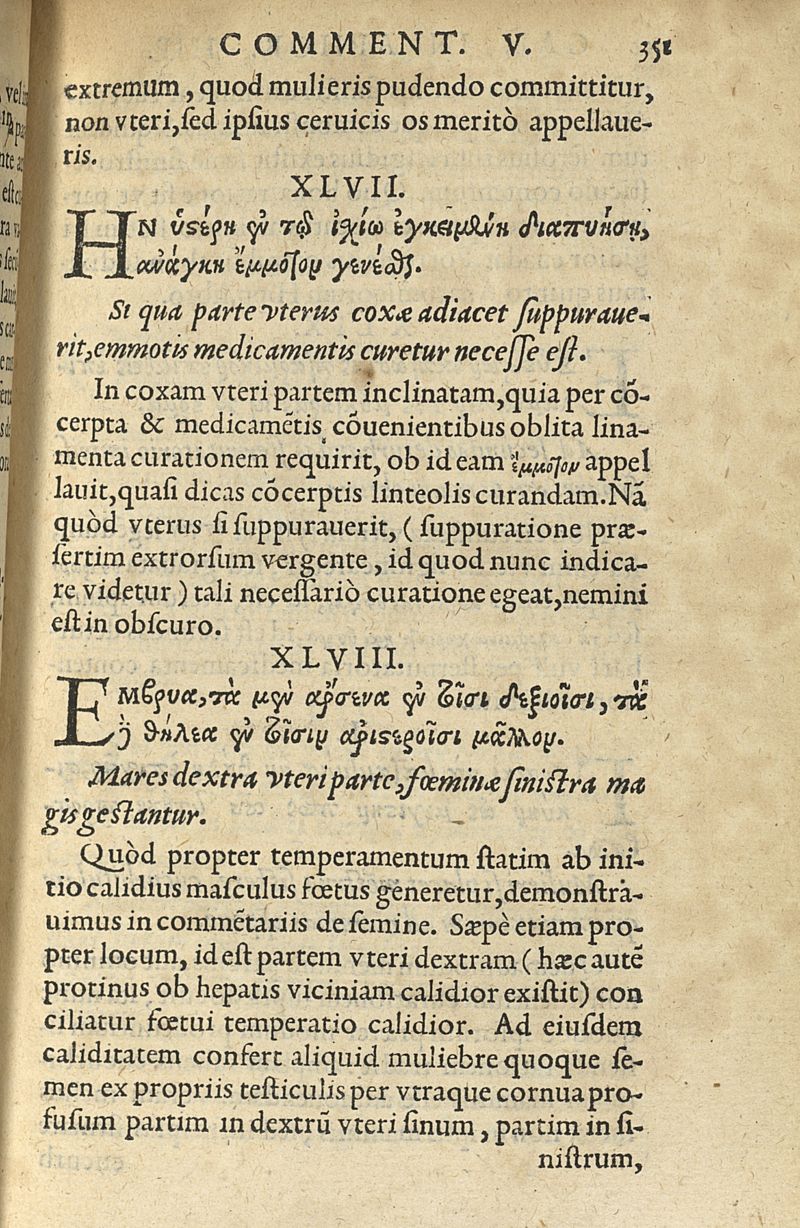 COMMENT. V. 351
extremum, quod mulieris pudendo committitur,
non vteri, sed ipsius ceruicis os meritò appellaue-
ris.
XLVII.
ἪΝ ὑστέρη ἐν τῷ ἰσχίῳ ἐγκειμένη διαπυήσῃ,
ἀνάγκη ἔμμοτον γενέσθαι.
Si qua parte vterus coxæ adiacet suppuraue-
rit, emmotis medicamentis curetur necesse est.
In coxam vteri partem inclinatam, quia per cō-
cerpta & medicamētis cōuenientibus oblita lina-
menta curationem requirit, ob id eam ἔμμοτον appel
lauit, quasi dicas cōcerptis linteolis curandam. Nā
quòd vterus si suppurauerit, (suppuratione præ-
sertim extrorsum vergente, id quod nunc indica-
re videtur) tali necessariò curatione egeat, nemini
est in obscuro.
XLVIII.
ἜΜβρυα, τὰ μὲν ἄρσενα ἐν τοῖσι δεξιοῖσι, τὰ
δὲ θήλεα ἐν τοῖσιν ἀριστεροῖσι μᾶλλον.
Mares dextra vteri parte, fœminæ sinistra ma
gis gestantur.
Quòd propter temperamentum statim ab ini-
tio calidius masculus fœtus generetur, demonstra-
uimus in commētariis de semine. Sæpè etiam pro-
pter locum, id est partem vteri dextram (hæc autē
protinus ob hepatis viciniam calidior existit) con
ciliatur fœtui temperatio calidior. Ad eiusdem
caliditatem confert aliquid muliebre quoque se-
men ex propriis testiculis per vtraque cornua pro-
fusum partim in dextrū vteri sinum, partim in si-
nistrum,